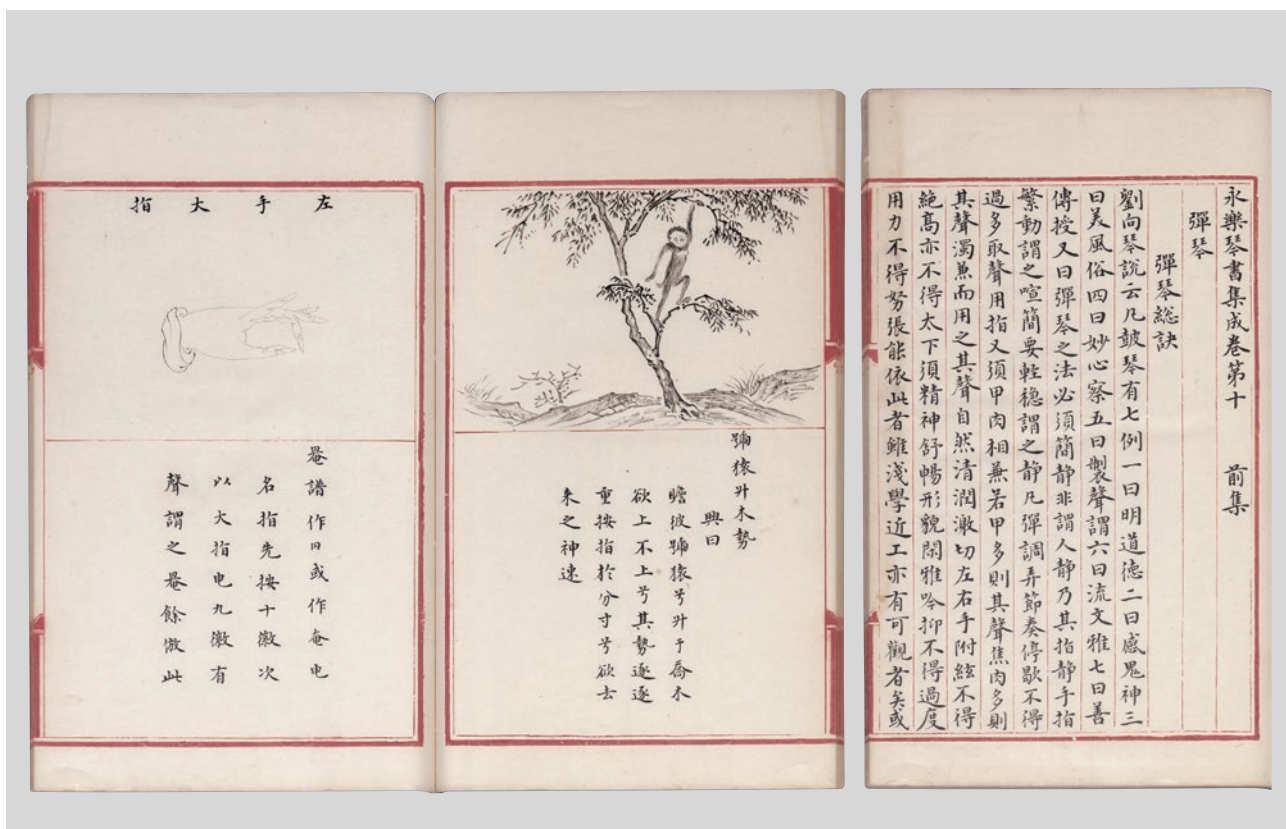 永樂琴書集成卷第十 前集
彈琴
彈琴総訣
劉向琴說云凡皷琴有七例一曰明道德二曰感鬼神三
曰美風俗四曰妙心察五曰製聲謂六曰流文雅七曰善
傳授又曰彈琴之法必須簡静非謂人静乃其指静手指
繁動謂之喧簡要輕穏謂之静凡彈調弄節奏停歇不得
過多取聲用指又須甲肉相兼若甲多則其聲焦肉多則
其聲濁兼而用之其聲自然清潤激切左右手附絃不得
絶髙亦不得太下須精神舒暢形貌閑雅吟抑不得過度
用力不得努張能依此者雖淺學近工亦有可觀者矣或
號猿升木勢
興曰
瞻彼號猿兮升于喬木
欲上不上兮其勢逐逐
重按指於分寸兮欲去
来之神速
左手大指
罨譜作或作奄电
名指先按十徽次
以大指电九徽有
聲謂之罨餘倣此